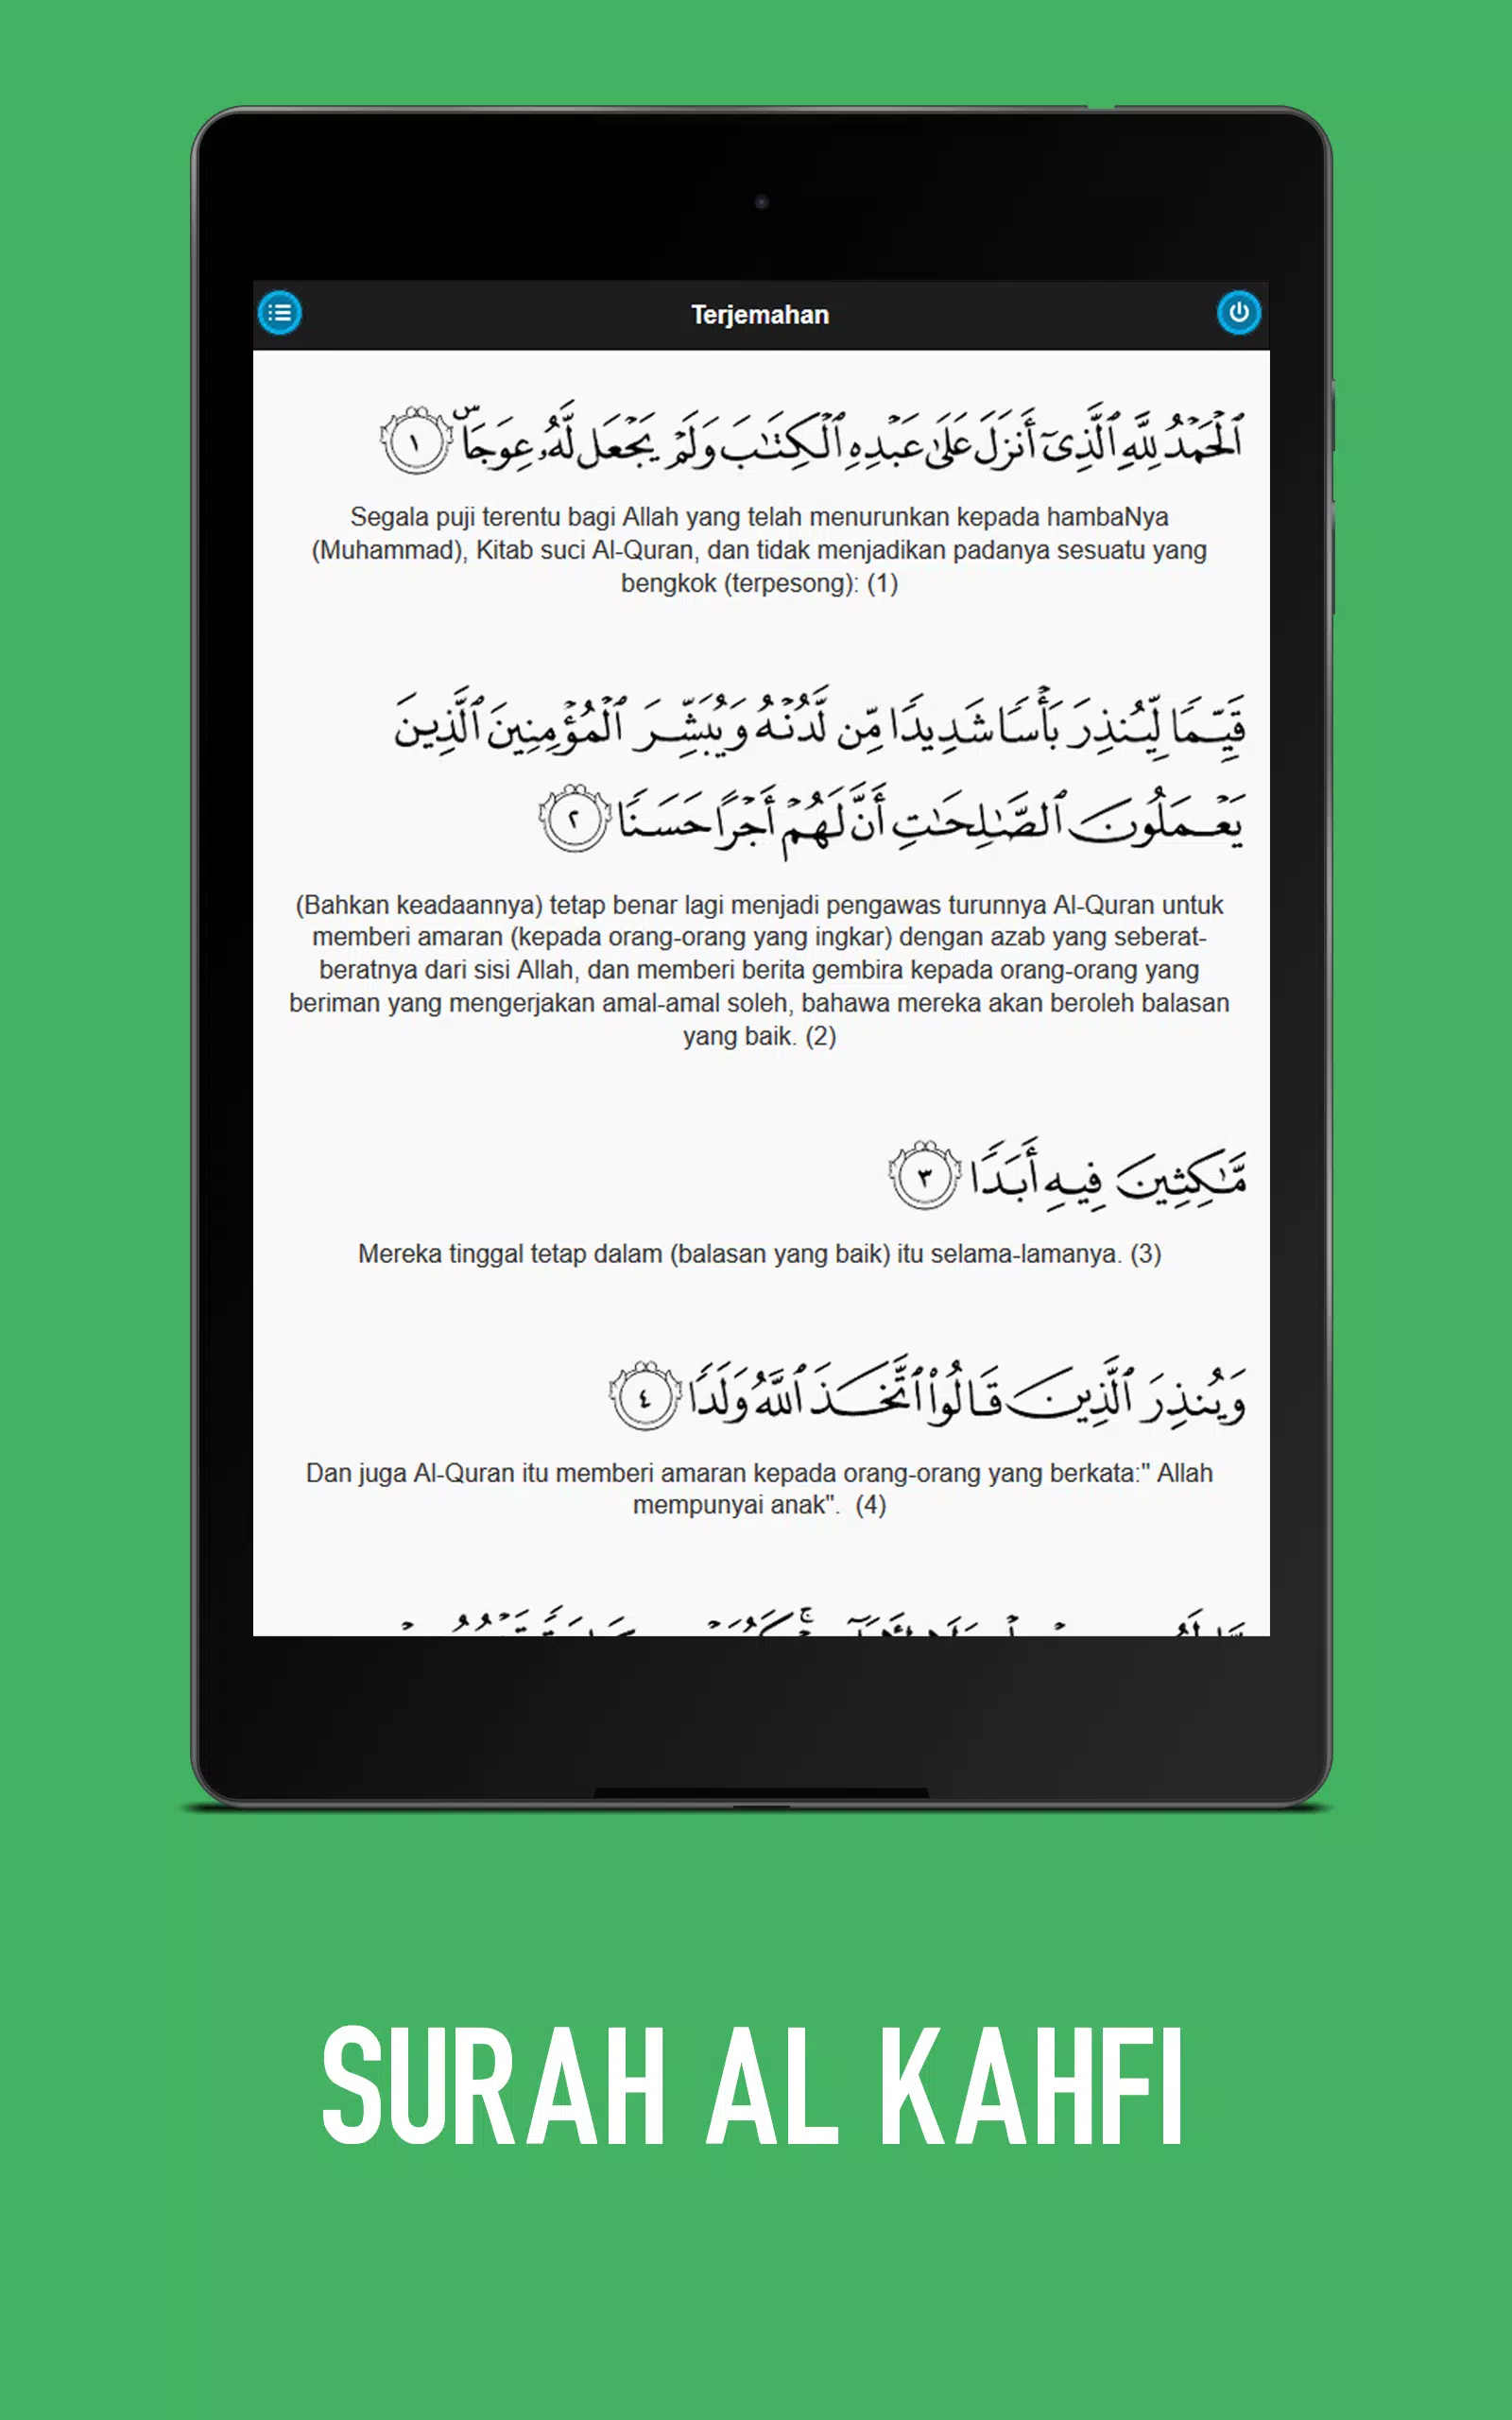 Terjemahan
ٱلْحَمْدُ لِلَّهِ ٱلَّذِىٓ أَنزَلَ عَلَىٰ عَبْدِهِ ٱلْكِتَٰبَ وَلَمْ يَجْعَل لَّهُۥ عِوَجَاۜ ١
Segala puji terentu bagi Allah yang telah menurunkan kepada hambaNya
(Muhammad), Kitab suci Al-Quran, dan tidak menjadikan padanya sesuatu yang
bengkok (terpesong): (1)
قَيِّمًا لِّيُنذِرَ بَأْسًا شَدِيدًا مِّن لَّدُنْهُ وَيُبَشِّرَ ٱلْمُؤْمِنِينَ ٱلَّذِينَ
يَعْمَلُونَ ٱلصَّٰلِحَٰتِ أَنَّ لَهُمْ أَجْرًا حَسَنًا ٢
(Bahkan keadaannya) tetap benar lagi menjadi pengawas turunnya Al-Quran untuk
memberi amaran (kepada orang-orang yang ingkar) dengan azab yang seberat-
beratnya dari sisi Allah, dan memberi berita gembira kepada orang-orang yang
beriman yang mengerjakan amal-amal soleh, bahawa mereka akan beroleh balasan
yang baik. (2)
مَّٰكِثِينَ فِيهِ أَبَدًا ٣
Mereka tinggal tetap dalam (balasan yang baik) itu selama-lamanya. (3)
وَيُنذِرَ ٱلَّذِينَ قَالُوا۟ ٱتَّخَذَ ٱللَّهُ وَلَدًا ٤
Dan juga Al-Quran itu memberi amaran kepada orang-orang yang berkata:" Allah
mempunyai anak".  (4)
SURAH AL KAHFI